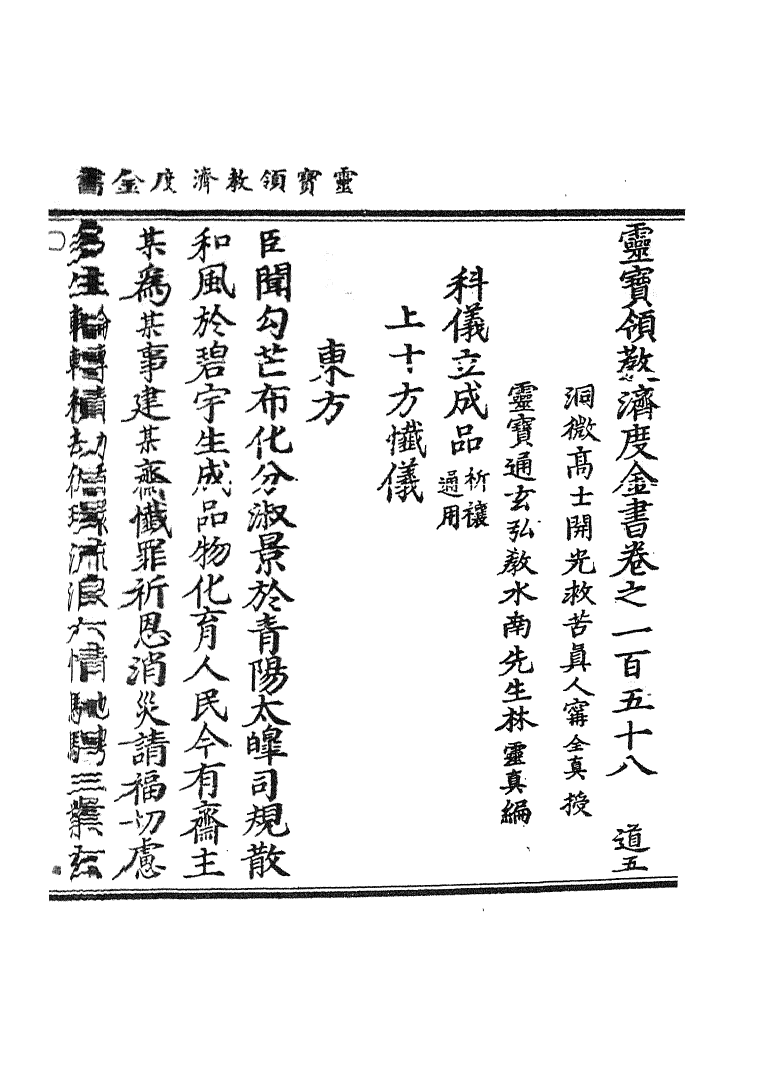 靈寶領教濟度金書
靈寶領教濟度金書卷之一百五十八 道五
洞微高士開光救苦眞人甯全真授
靈寶通玄弘教水南先生林靈真編
科儀立成品 祈禳通用
上十方懺儀
東方
臣聞勾芒布化分淑景於青陽太皡司規散
和風於碧宇生成品物化育人民今有齋主
某爲某事建某齋懺罪祈恩消災請福切慮
多生輪轉積劫流浪六情馳騁三業